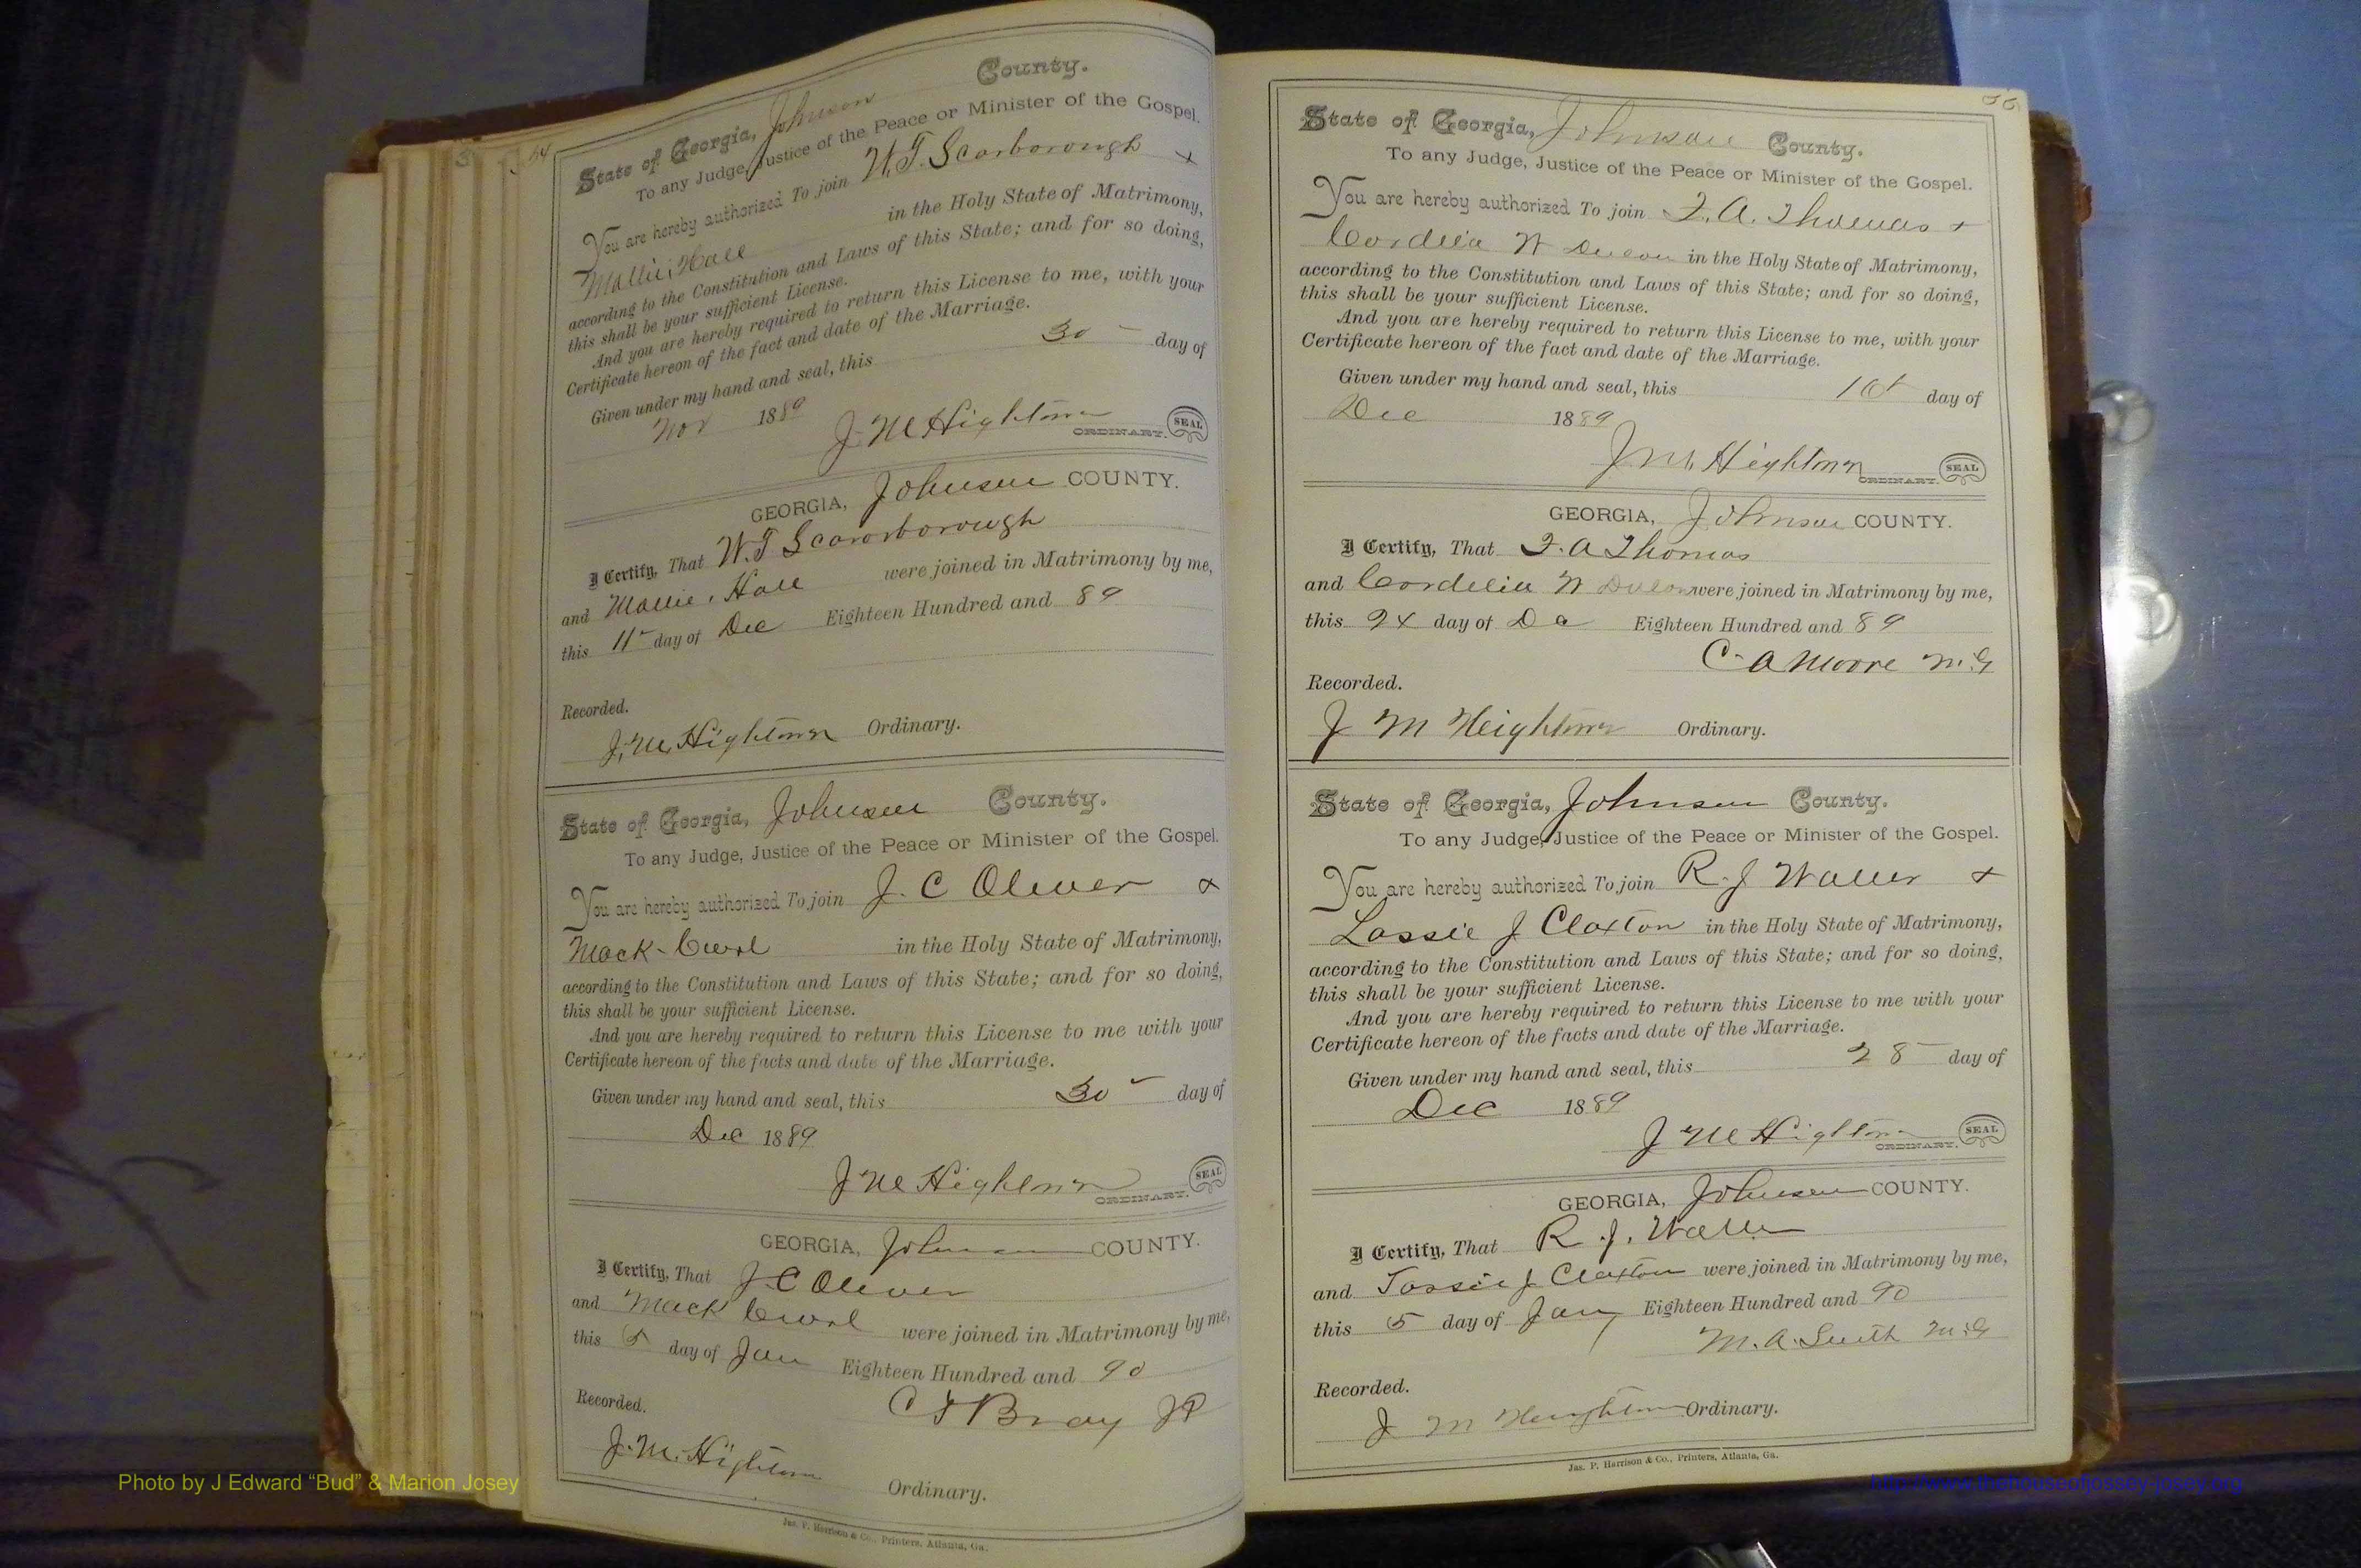 54
State of Georgia, Johnson County.
To any Judge, Justice of the Peace or Minister of the Gospel.
You are hereby authorized To join W.T. Scarborough +
Mollie Hall in the Holy State of Matrimony,
according to the Constitution and Laws of this State; and for so doing,
this shall be your sufficient License.
And you are hereby required to return this License to me, with your
Certificate hereon of the fact and date of the Marriage.
Given under my hand and seal, this 30 day of
Nov 1889
J. M Hightower ORDINARY. SEAL
GEORGIA, Johnson COUNTY.
I Certify, That W.T Scarorborough
and Mollie Hall were joined in Matrimony by me,
this 11 day of Dec Eighteen Hundred and 89
Recorded.
J. M. Hightower Ordinary.
State of Georgia, Johnson County.
To any Judge, Justice of the Peace or Minister of the Gospel.
You are hereby authorized To join J. C Oliver &
Mack in the Holy State of Matrimony,
according to the Constitution and Laws of this State; and for so doing,
this shall be your sufficient License.
And you are hereby required to return this License to me with your
Certificate hereon of the facts and date of the Marriage.
Given under my hand and seal, this 30 day of
Dec 1889
J M Hightower ORDINARY. SEAL
GEORGIA, Johnson COUNTY.
I Certify, That J. C Oliver
and Mack were joined in Matrimony by me,
this 5 day of Jan Eighteen Hundred and 90
C Bray JP
Recorded.
J. M. Hightower
Ordinary.
Jas. P. Harrison & Co., Printers, Atlanta, Ga.
State of Georgia, Johnson County.
To any Judge, Justice of the Peace or Minister of the Gospel.
You are hereby authorized To join A. Thomas +
Cordelia in the Holy State of Matrimony,
according to the Constitution and Laws of this State; and for so doing,
this shall be your sufficient License.
And you are hereby required to return this License to me, with your
Certificate hereon of the fact and date of the Marriage.
Given under my hand and seal, this day of
Dec 1889
J M. Hightower ORDINARY. SEAL
GEORGIA, Johnson COUNTY.
I Certify, That A Thomas
and Cordelia were joined in Matrimony by me,
this day of Eighteen Hundred and 89
C. A Moore M.G
Recorded.
J M Heightower Ordinary.
State of Georgia, Johnson County.
To any Judge, Justice of the Peace or Minister of the Gospel.
You are hereby authorized To join R. J Waller +
Lassie J Claxton in the Holy State of Matrimony,
according to the Constitution and Laws of this State; and for so doing,
this shall be your sufficient License.
And you are hereby required to return this License to me with your
Certificate hereon of the facts and date of the Marriage.
Given under my hand and seal, this 28 day of
Dec 1889
J M Hightower ORDINARY. SEAL
GEORGIA, Johnson COUNTY.
I Certify, That R. J. Waller
and J Claxton were joined in Matrimony by me,
this 5 day of Jany Eighteen Hundred and 90
M. A. Smith M.G
Recorded.
J M Heightower Ordinary.
Jas. P. Harrison & Co., Printers, Atlanta, Ga.
Photo by J Edward “Bud” & Marion Josey
http://www.thehouseofjossey-josey.org